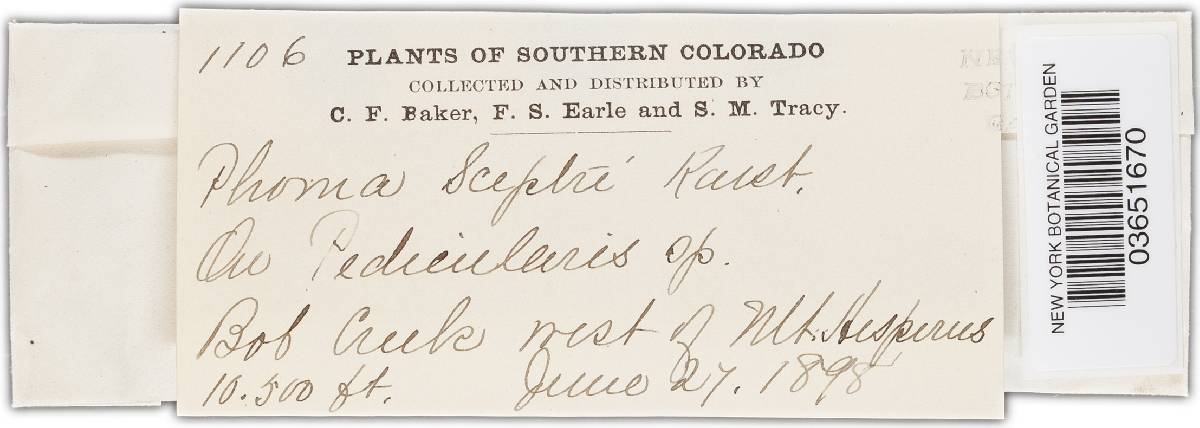 1106 PLANTS OF SOUTHERN COLORADO
COLLECTED AND DISTRIBUTED BY
C. F. Baker, F. S. Earle and S. M. Tracy.
Phoma Sceptri Karst.
On Pedicularis sp.
Bob Creek west of Mt. Hesperus
10.500 ft. June 27, 1898
NEW YORK BOTANICAL GARDEN
03651670